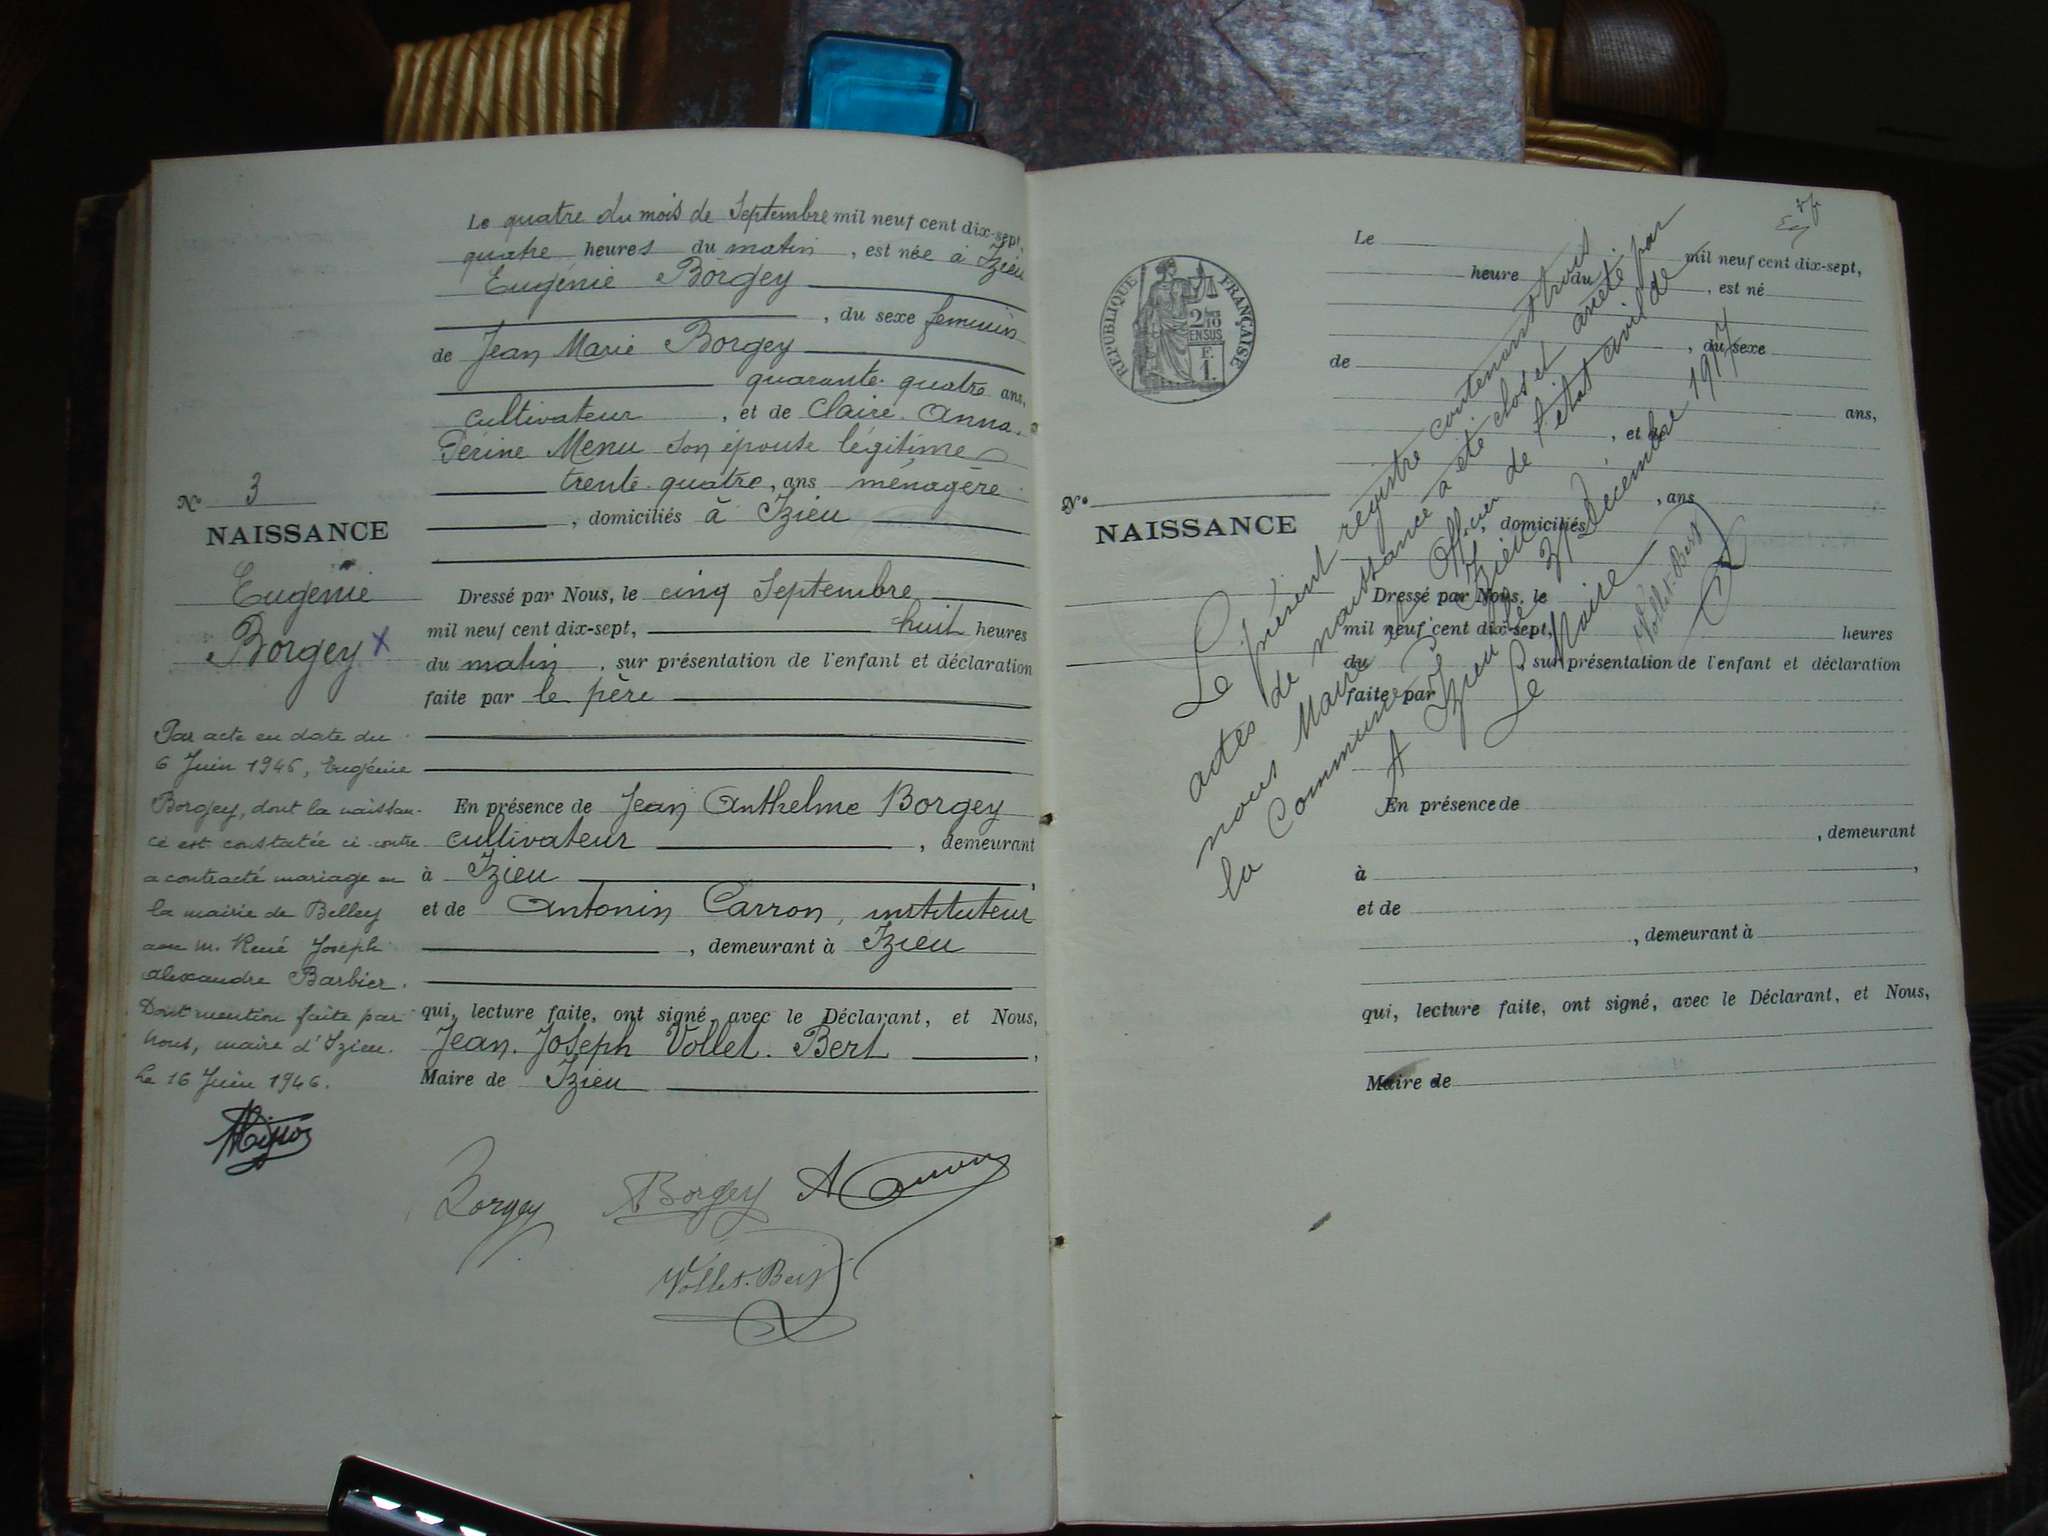 Le quatre du mois de Septembre mil neuf cent dix-sept,
quatre heures du matin, est née à Izieu
Eugénie Borgey
, du sexe feminin
de Jean Marie Borgey
quarante-quatre ans,
cultivateur, et de Claire Anna
Périne Menu son épouse légitime
trente-quatre, ans ménagère
, domiciliés à Izieu
N° 3
NAISSANCE
Eugénie
Borgey x
Dressé par Nous, le cinq Septembre
mil neuf cent dix-sept, huit heures
du matin, sur présentation de l'enfant et déclaration
faite par le père
En présence de Jean Anthelme Borgey
cultivateur, demeurant
à Izieu,
et de Antonin Carron, instituteur
, demeurant à Izieu
qui, lecture faite, ont signé, avec le Déclarant, et Nous,
Jean-Joseph Vollet-Bert,
Maire de Izieu
Par acte en date du
6 Juin 1946, Eugénie
Borgey, dont la naissan-
ce est constatée ci-contre
a contracté mariage en
la mairie de Belley
avec M. René Joseph
Alexandre Barbier.
Dont mention faite par
Nous, maire d'Izieu.
Le 16 Juin 1946.
Borgey Borgey A Carron
Vollet-Bert
RÉPUBLIQUE FRANÇAISE
2/10 EN SUS
F.
1.
Le mil neuf cent dix-sept,
heure du , est né
, du sexe
de
ans,
, et de
, ans
, domiciliés
N°
NAISSANCE
Dressé par Nous, le
mil neuf cent dix-sept, heures
du sur présentation de l'enfant et déclaration
faite par
En présence de
, demeurant
à ,
et de
, demeurant à
qui, lecture faite, ont signé, avec le Déclarant, et Nous,
Maire de
Le présent registre contenant trois
actes de naissance a été clos et arrêté par
nous Maire et Officier de l'état civil de
la Commune d'Izieu
A Izieu le 31 Décembre 1917
Le Maire
Vollet-Bert